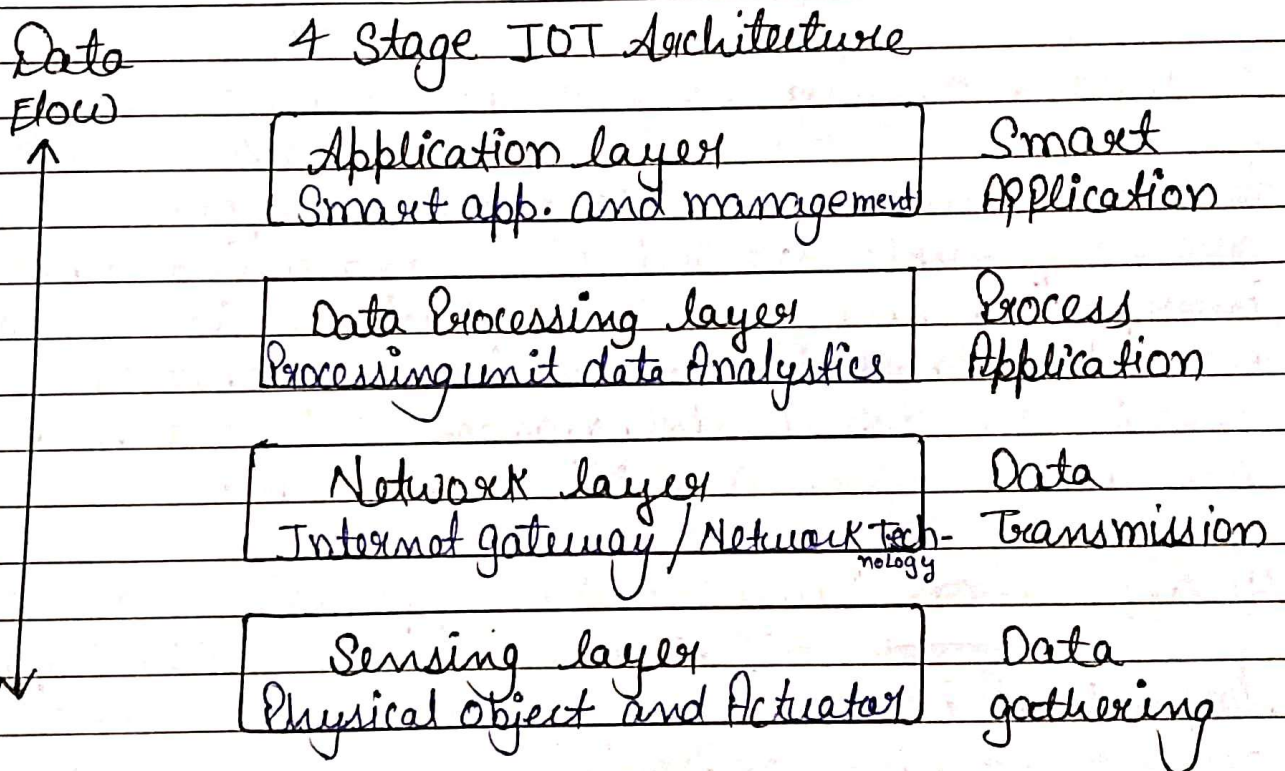 Data
Flow
4 Stage IOT Architeture
Application layer
Smart app. and management
Smart
Application
Data Processing layer
Processing unit data Analystics
Process
Application
Network layer
Internet gateway / Network Tech-
nology
Data
Transmission
Sensing layer
Physical object and Actuator
Data
gathering